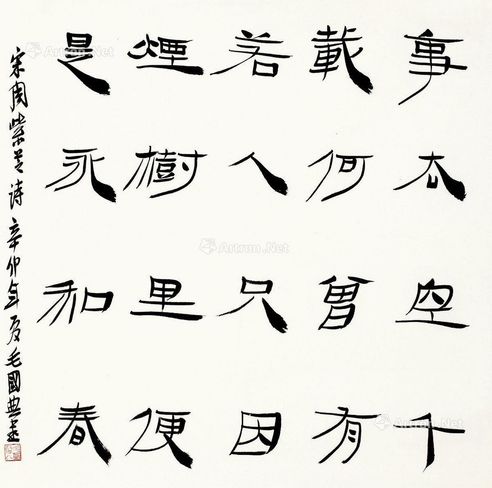 事太空千
載何曾有
若人只因
煙樹里便
是永和春
宋周紫芝诗 辛卯年夏毛國典書
Artron.Net
Artron.Net
Artron.Net